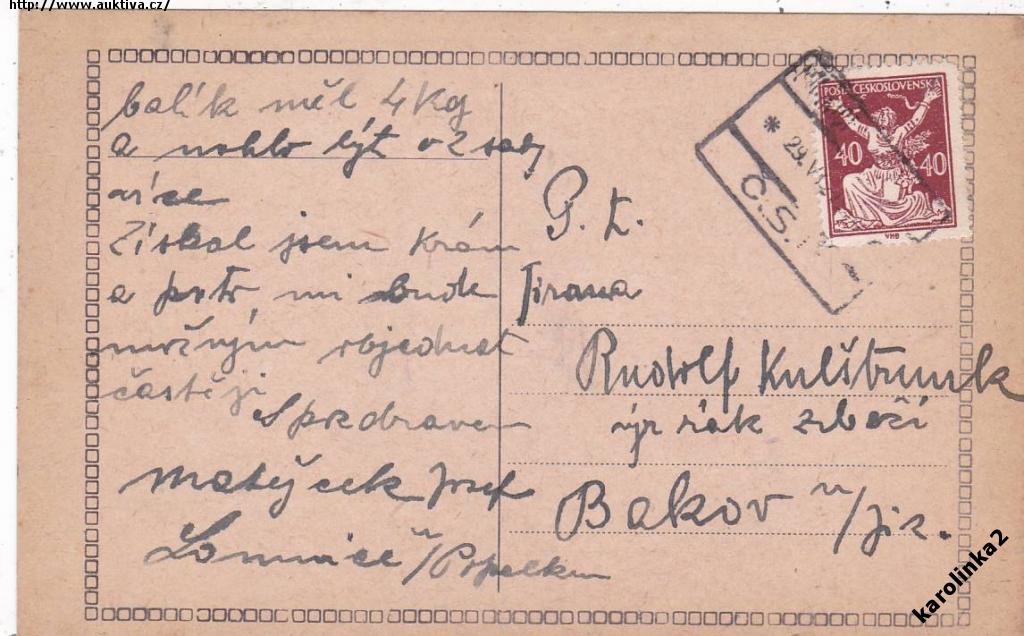 http://www.auktiva.cz/
balík měl 4 Kg
a mohlo být o 2 sady
více
Získal jsem krám
a proto mi bude
možným objednat
častěji
S pozdravem
Matějcek Josef
Lomnice n/Popelkou
P. T.
Firma
Rudolf Kulštrunk
výr. zboží
Bakov n/Jiz.
POŠTA ČESKOSLOVENSKÁ
40 40
VHB
* 29. VI
Č.S.
karolinka2